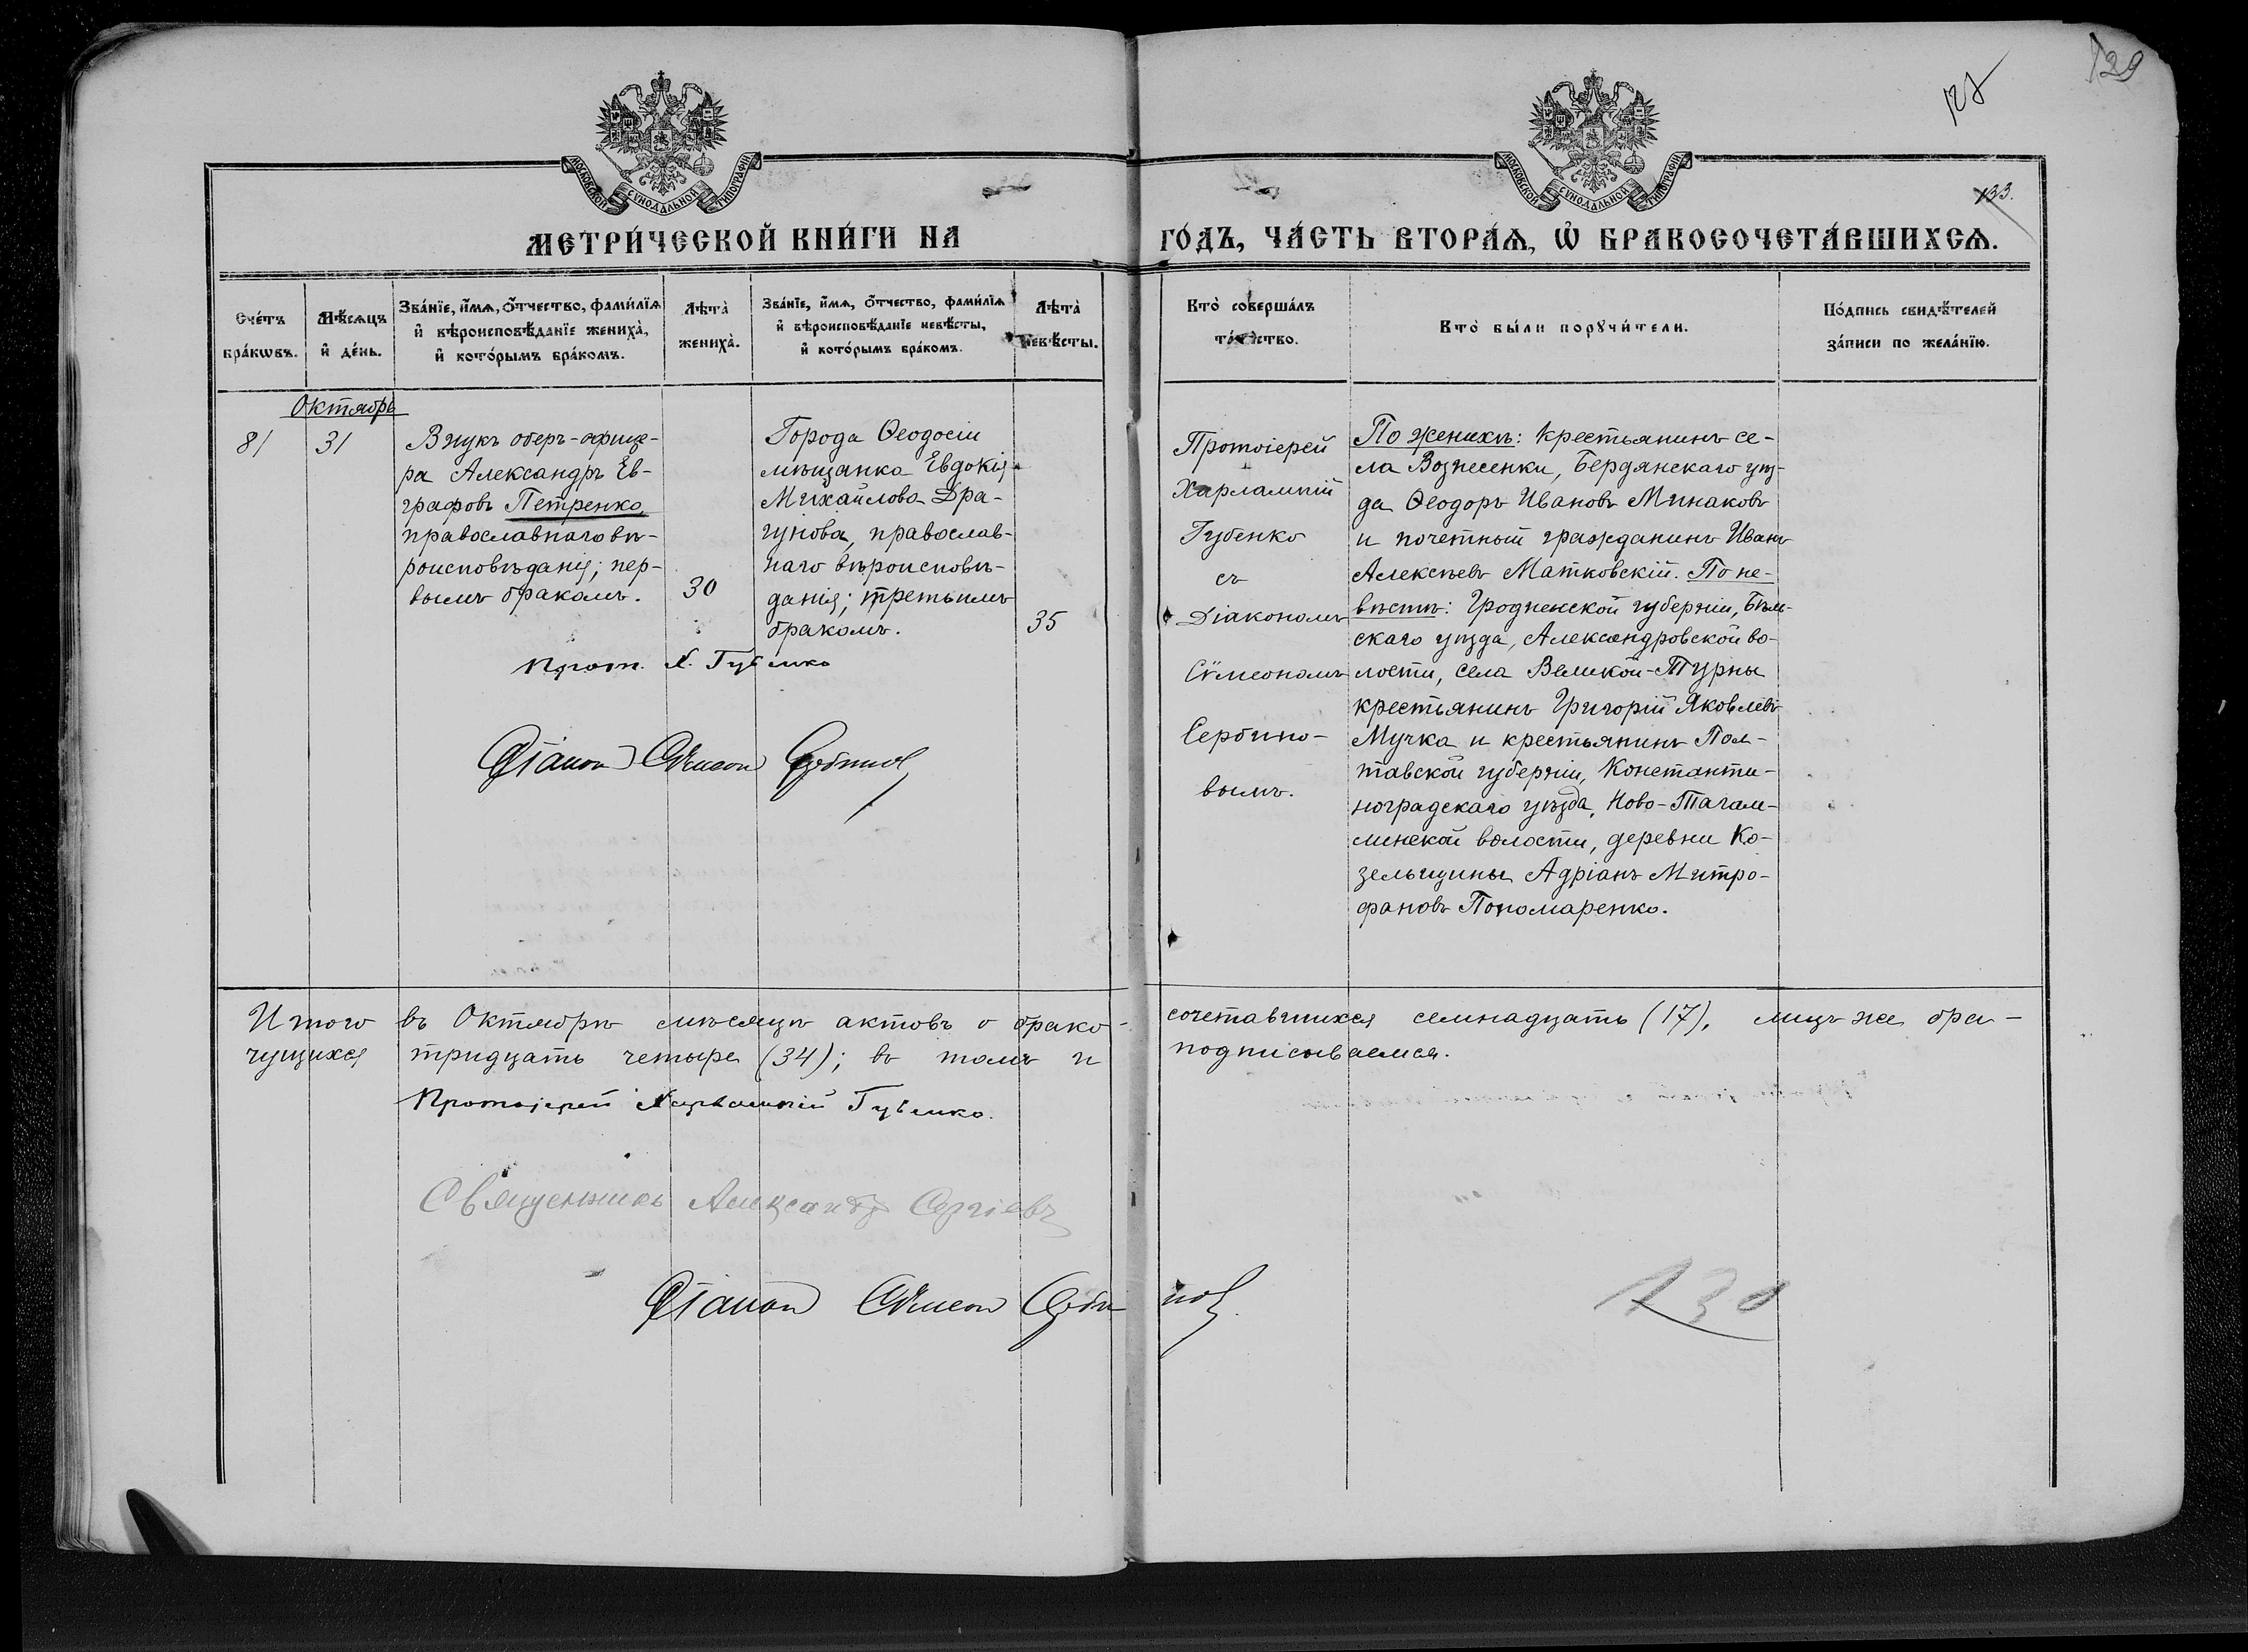 129
127
МОСКОВСКОЙ СѴНОДАЛЬНОЙ ТИПОГРАФІИ
МОСКОВСКОЙ СѴНОДАЛЬНОЙ ТИПОГРАФІИ
133.
МЕТРИ́ЧЕСКОЙ КНИ́ГИ НА
ГО́ДЪ, ЧА́СТЬ ВТОРА́Ѧ, Ѡ҆ БРАКОСОЧЕТА́ВШИХСѦ.
Сче́тъ
бра́кѡвъ.
Мѣ́сѧцъ
и҆ де́нь.
Зва́нїе, и҆́мѧ, о҆́тчество, фами́лїѧ
и҆ вѣроисповѣ́данїе жениха̀,
и҆ кото́рымъ бра́комъ.
Лѣта̀
жениха̀.
Зва́нїе, и҆́мѧ, о҆́тчество, фами́лїѧ
и҆ вѣроисповѣ́данїе невѣ́сты,
и҆ кото́рымъ бра́комъ.
Лѣта̀
невѣ́сты.
Кто̀ соверша́лъ
та́инство.
Кто̀ бы́ли порꙋчи́тели.
По́дпись свидѣ́телей
за́писи по жела́нїю.
Октябрь
81
31
Внукъ оберъ-офице-
ра Александръ Ев-
графовъ Петренко,
православнаго вѣ-
роисповѣданія; пер-
вымъ бракомъ.
30
Города Ѳеодосіи
мѣщанка Евдокія
Михайлова Дра-
гунова, православ-
наго вѣроисповѣ-
данія; третьимъ
бракомъ.
35
Прот. Х. Губенко
Діаконъ Сѵмеонъ Сербиновъ
Протоіерей
Харлампій
Губенко
съ
Діакономъ
Сѵмеономъ
Сербино-
вымъ.
По женихѣ: крестьянинъ се-
ла Вознесенки, Бердянскаго уѣз-
да Ѳеодоръ Ивановъ Минаковъ
и почетный гражданинъ Иванъ
Алексѣевъ Матковскій. По не-
вѣстѣ: Гродненской губерніи, Бѣль-
скаго уѣзда, Александровской во-
лости, села Великой-Турны
крестьянинъ Григорій Яковлевъ
Мучка и крестьянинъ Пол-
тавской губерніи, Константи-
ноградскаго уѣзда, Ново-Тагам-
лыкской волости, деревни Ко-
зельщины Адріанъ Митро-
фановъ Пономаренко.
Итого въ Октябрѣ мѣсяцѣ актовъ о брако-
сочетавшихся семнадцать (17), лицъ же бра-
чущихся тридцать четыре (34); въ томъ и
подписываемся.
Протоіерей Харлампій Губенко.
Священникъ Александръ Сергіевъ
Діаконъ Сѵмеонъ Сербиновъ.
130